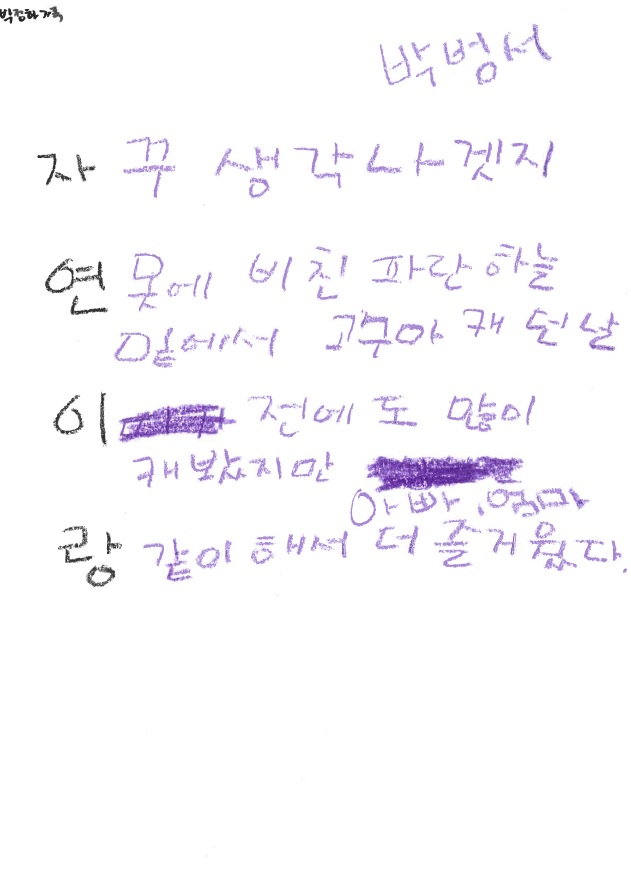 박병서
자꾸 생각나겟지
연못에 비친 파란하늘
밑에서 고구마 캐던날
이 전에도 많이
캐봤지만
아빠, 엄마
랑 같이해서 더 즐거웠다.